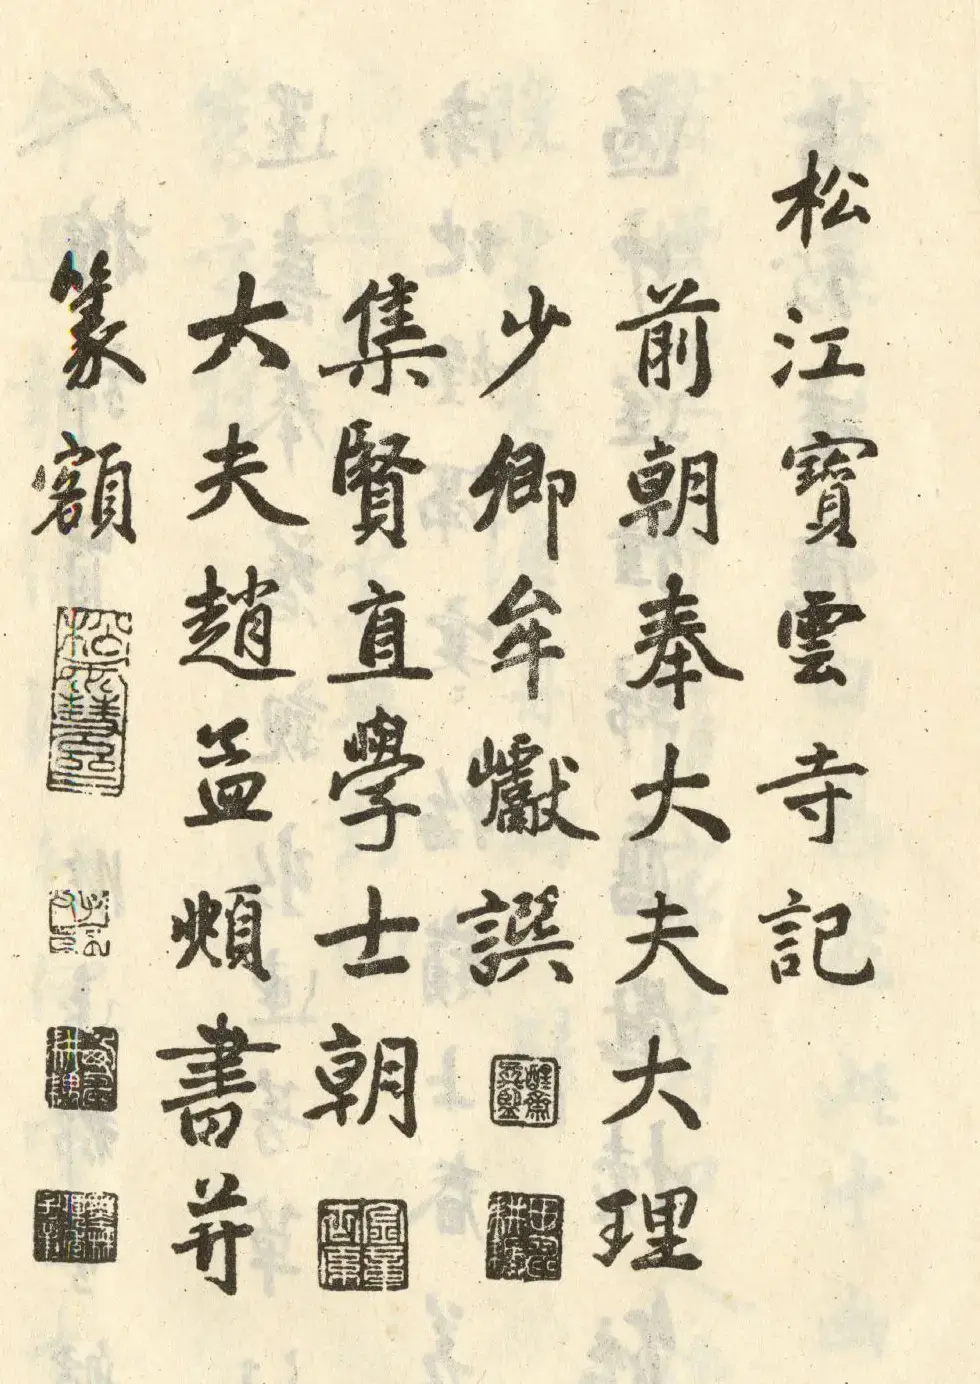 松江寶雲寺記
前朝奉大夫大理
少卿牟巘譔
集賢直學士朝
大夫趙孟頫書并
篆額